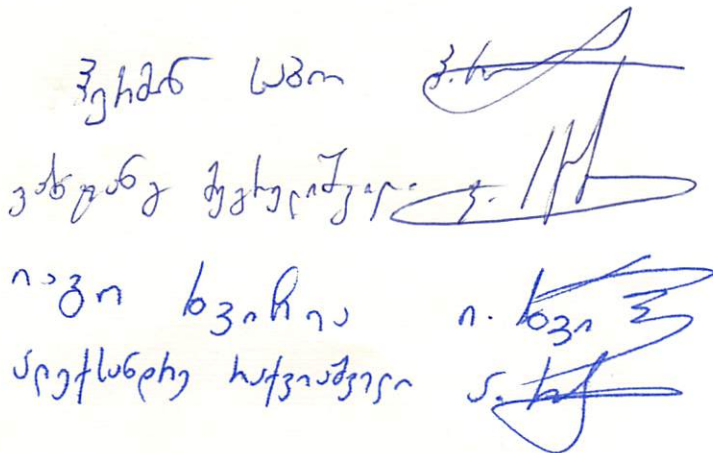 ჰერმან საბო
ვახტანგ მეგრელიშვილი
იაგო ხვიჩია ი. ხვი
ალექსანდრე რაქვიაშვილი